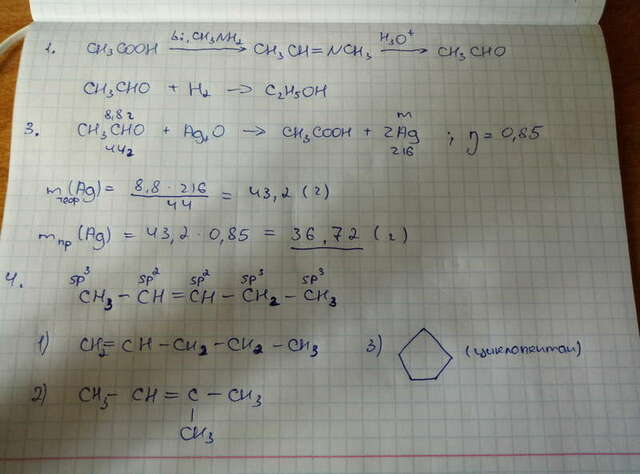 1. CH₃COOH —Li, CH₃NH₂→ CH₃CH=NCH₃ —H₃O⁺→ CH₃CHO
CH₃CHO + H₂ → C₂H₅OH
8,8 г m
3. CH₃CHO + Ag₂O → CH₃COOH + 2Ag ; η = 0,85
44 г 216
m теор (Ag) = 8,8 · 216 / 44 = 43,2 (г)
m пр (Ag) = 43,2 · 0,85 = 36,72 (г)
sp³ sp² sp² sp³ sp³
4. CH₃ – CH = CH – CH₂ – CH₃
1) CH₂ = CH – CH₂ – CH₂ – CH₃ 3) (циклопентан)
2) CH₃ – CH = C – CH₃
CH₃